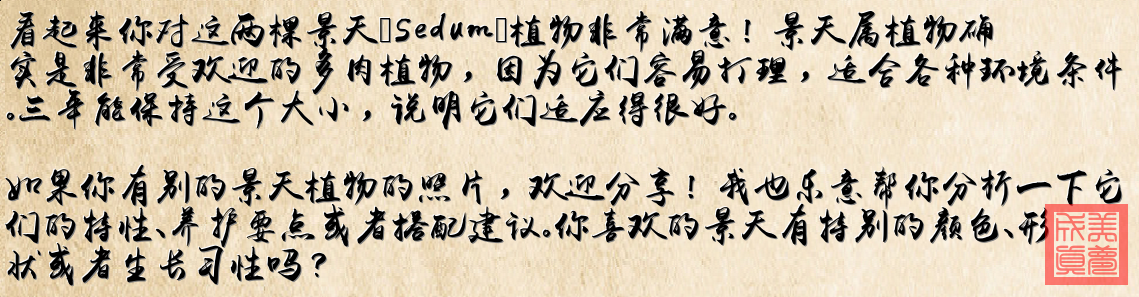 看起来你对这两棵景天□Sedum□植物非常满意！景天属植物确
实是非常受欢迎的多肉植物，因为它们容易打理，适合各种环境条件
。三年能保持这个大小，说明它们适应得很好。
如果你有别的景天植物的照片，欢迎分享！我也乐意帮你分析一下它
们的特性、养护要点或者搭配建议。你喜欢的景天有特别的颜色、形
状或者生长习性吗？
美梦
成真